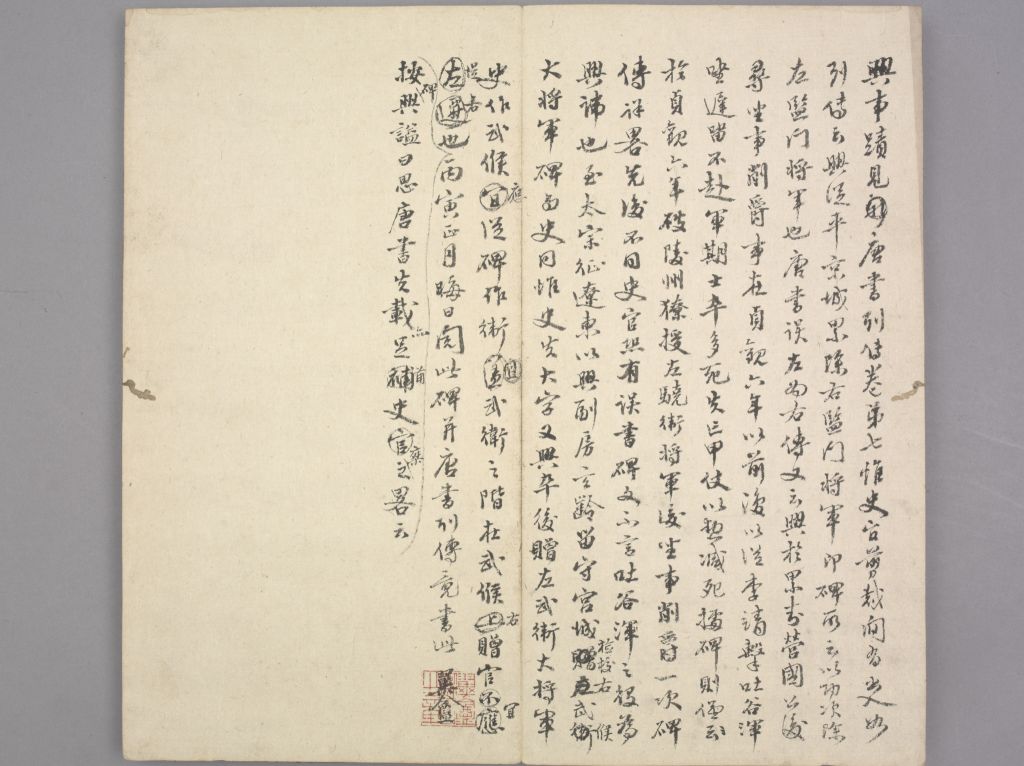 興事蹟見舊唐書列傳卷第七惟史官剪裁间有異如
列傳云興從平京城累除右監门将軍即碑所云以功次除
左監门将軍也唐書误左为右傳又云興於累封營國公後
尋坐事削爵事在貞觀六年以前後以從李靖擊吐谷渾
坐遅留不赴軍期士卒多死失亡甲仗以勲减死據碑則值
於貞觀六年破陵州獠授左驍衛将軍後坐事削爵一次碑
傳详畧先後不同史官然有误書碑文不言吐谷渾之役为
興諱也至太宗征遼東以興副房玄齡留守宫城檢校右武候
大将軍碑與史同惟史失大字又興卒後贈左武衛大将軍
史作武候應從碑作衛武衛之階在武候右贈官不應宜
左也丙寅正月晦日阅此碑并唐書列傳竟書此
按興碑謚曰思唐書失載并足補史官之畧云